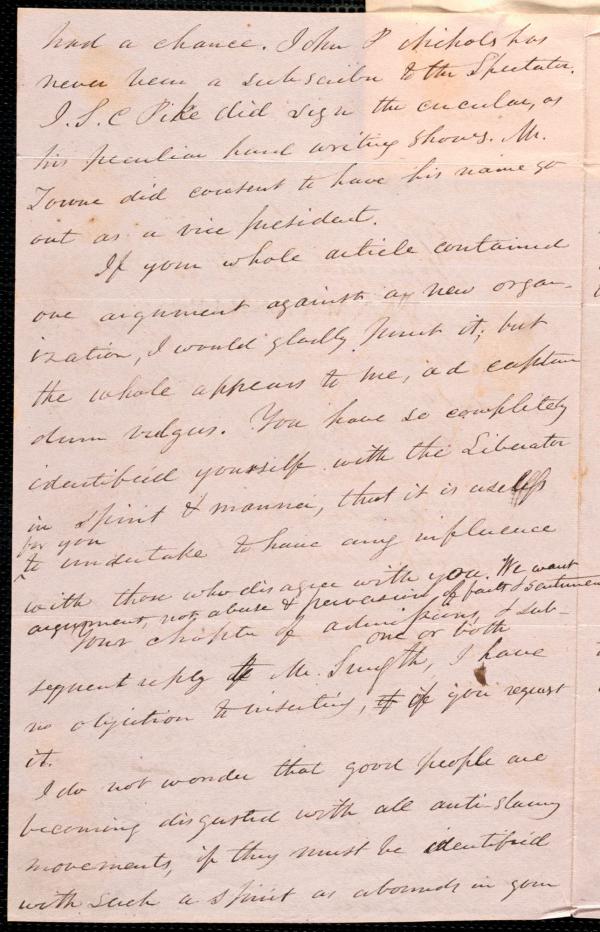 had a chance. John P Nichols has
never been a subscriber to the Spectator.
I. S. C Pike did sign the circular, as
his peculiar hand writing shows. Mr.
Towne did consent to have his name go
out as a vice president.
If your whole article contained
one argument against a new organ-
ization, I would gladly print it; but
the whole appears to me, ad captan
dum vulgus. You have so completely
identified yourself with the Liberator
in spirit & manner, that it is useless
for you
to undertake to have any influence
with those who disagree with you. We want
argument, not abuse & perversion of facts & sentiment
Your chapter of admissions, & sub-
one or both
sequent reply to Mr. Smyth, I have
no objection to inserting, if you request
it.
I do not wonder that good people are
becoming disgusted with all anti-slavery
movements, if they must be identified
with such a spirit as abounds in your